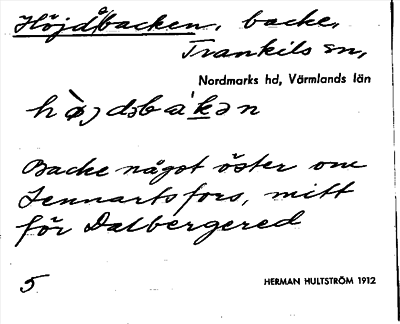 Höjdåbacken, backe,
Trankils sn,
Nordmarks hd, Värmlands län
Backe något öster om
Lennartsfors, mitt
för Dalbergered
5
HERMAN HULTSTRÖM 1912